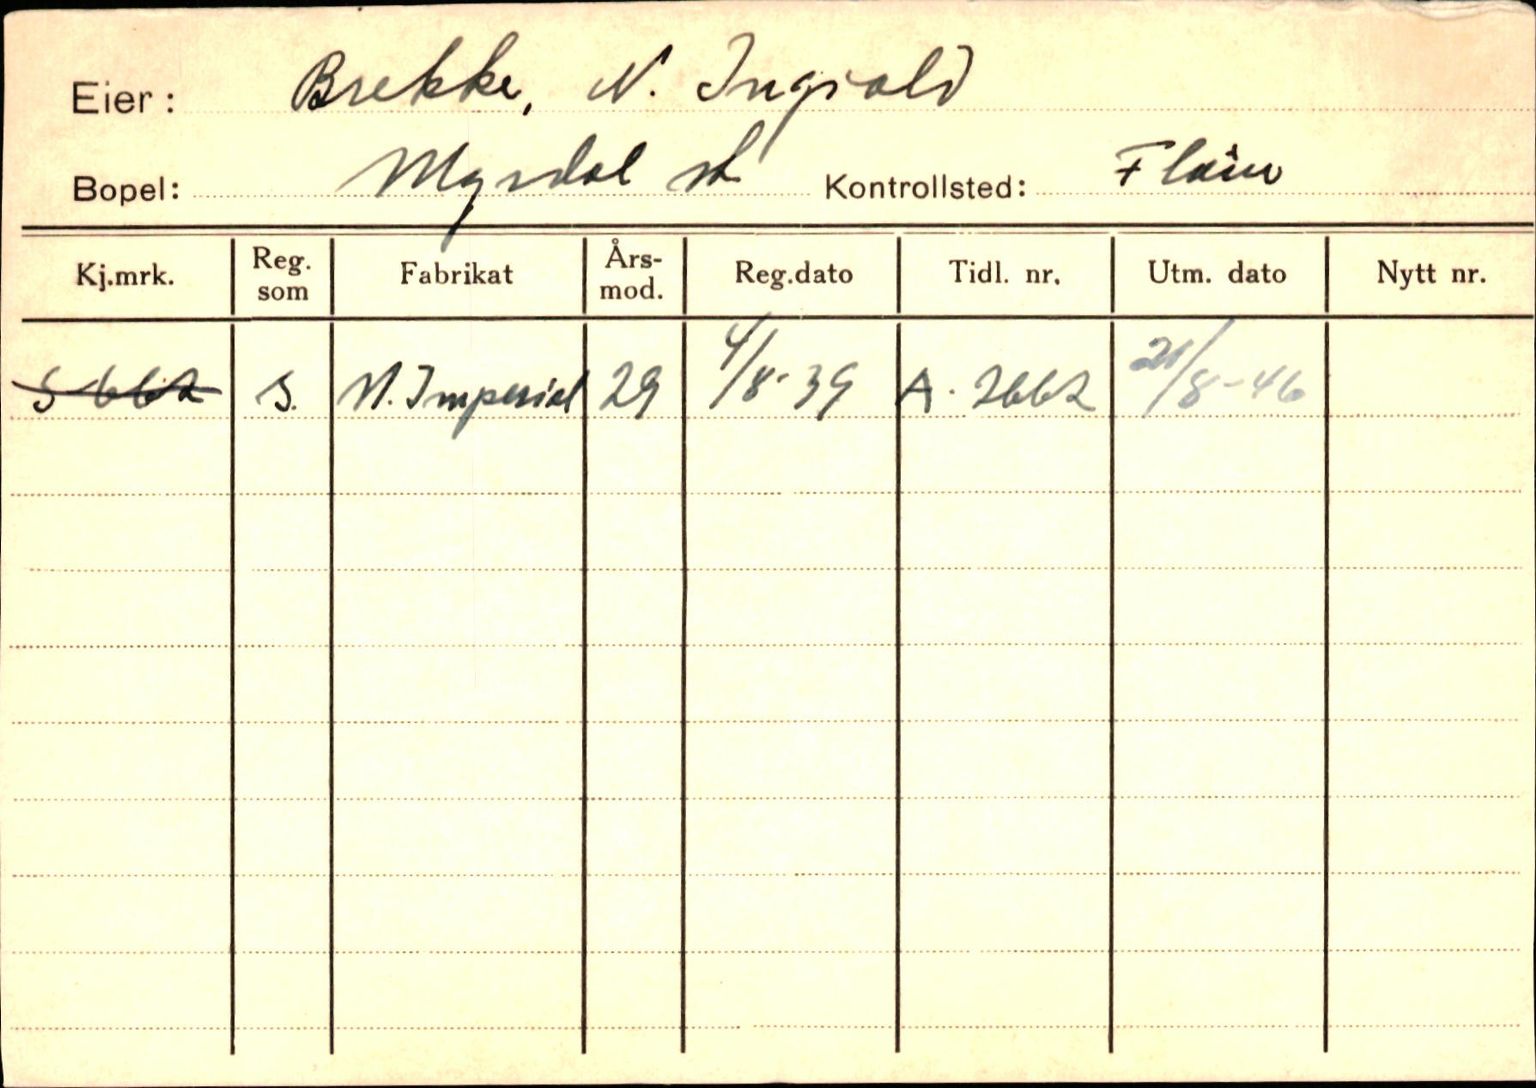 Eier: Brekke, N. Ingvald
Bopel: Myrdal st Kontrollsted: Flåm
Kj.mrk. Reg. som Fabrikat Års-mod. Reg.dato Tidl. nr. Utm. dato Nytt nr.
S 6662 S. N. Imperial 29 4/8-39 A. 2662 21/8-46